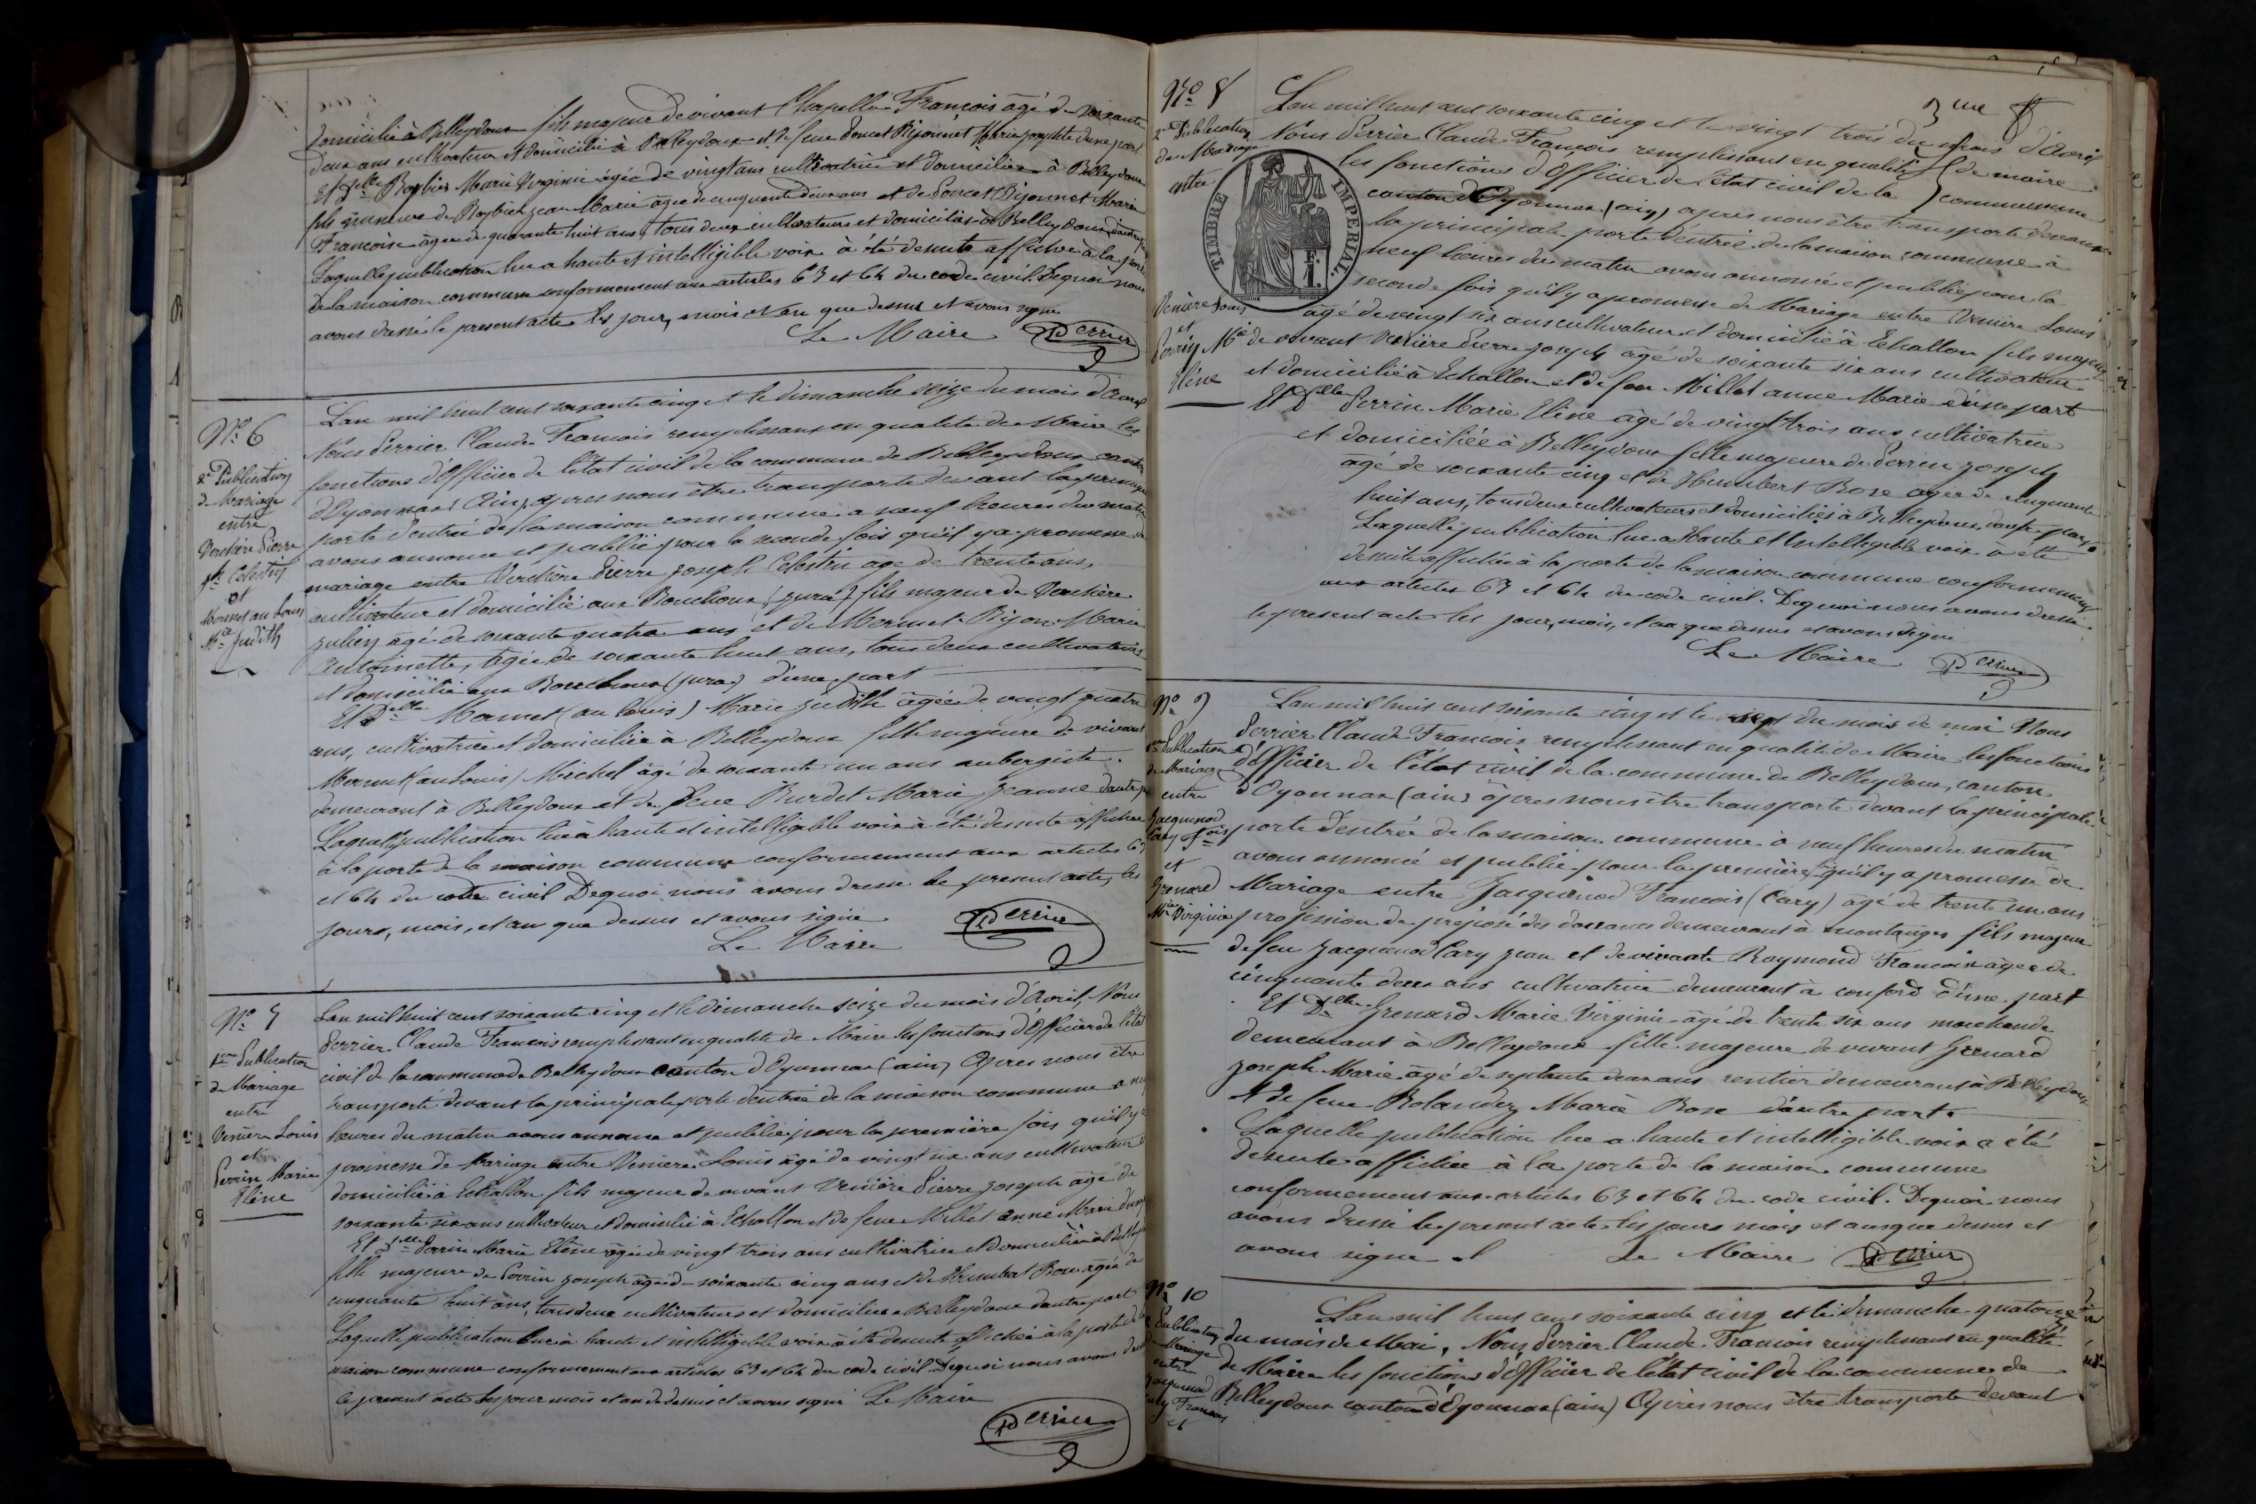 domicilié à Belleydoux fils majeur de vivant Chapelle François âgé de soixante
deux ans cultivateur et domicilié à Belleydoux et de feue Poncet Bijonnet Marie Josephte d'une part
Et Delle Rosbier Marie Virginie âgée de vingt ans cultivatrice et domiciliée à Belleydoux
fille mineure de Rosbier Jean Marie âgé de cinquante deux ans et de Poncet Bijonnet Marie
Françoise âgée de quarante huit ans, tous deux cultivateurs et domiciliés à Belleydoux
Laquelle publication lue a haute et intelligible voix à été desuite affichée à la porte
de la maison commune conformement aux articles 63 et 64 du code civil. Dequoi nous
avons dressé le present acte les jour, mois et an que dessus et avons signé
Le Maire Perrier
No 6
2e Publication
de Mariage
entre
Verchère Pierre
Jh Celestin
et
Mermet au Louis
Mie Judith
Lan mil huit cent soixante cinq et le dimanche seize du mois d'avril
Nous Perrier Claude François remplissant en qualité de Maire les
fonctions d'Officier de l'état civil de la commune de Belleydoux canton
d'Oyonnax (Ain) apres nous être transporte devant la principale
porte d'entrée de la maison commune a neuf heures du matin
avons annoncé et publié pour la seconde fois qu'il y a promesse de
mariage entre Verchère Pierre Joseph Celestin age de trente ans,
cultivateur et domicilié aux Bouchoux (jura) fils majeur de Verchère
Julien âgé de soixante quatre ans et de Mermet Bijon Marie
Antoinette, âgée de soixante huit ans, tous deux cultivateurs
et domicilié aux Bouchoux (jura) d'une part
Et Delle Mermet (au Louis) Marie Judith âgée de vingt quatre
ans, cultivatrice et domiciliée à Belleydoux fille majeure de vivant
Mermet (au Louis) Michel âgé de soixante un ans aubergiste
demeurant à Belleydoux et de feue Burdet Marie Jeanne d'autre part
Laquelle publication lue à haute et intelligible voix à été desuite affichée
à la porte de la maison commune conformement aux articles 63
et 64 du code civil Dequoi nous avons dressé le present acte, les
jours, mois, et an que dessus et avons signé
Le Maire Perrier
No 7
1ere Publication
de Mariage
entre
Venière Louis
et
Perrin Marie
Eline
Lan mil huit cent soixante cinq et le dimanche seize du mois d'Avril, Nous
Perrier Claude François remplissant en qualité de Maire les fonctions d'Officier de l'état
civil de la commune de Belleydoux canton d'Oyonnax (ain) Apres nous être
transporte devant la principale porte d'entrée de la maison commune a neuf
heures du matin avons annoncé et publié pour la première fois qu'il y a
promesse de Mariage entre Venière Louis âgé de vingt six ans cultivateur
domicilié à Echallon fils majeur de vivant Venière Pierre Joseph âgé de
soixante six ans cultivateur et domicilié à Echallon et de feue Millet Anne Marie d'une part
Et Delle Perrin Marie Eline âgée de vingt trois ans cultivatrice et domiciliée à Belleydoux
fille majeure de Perrin Joseph âgé de soixante cinq ans et de Humbert Rose agée de
cinquante huit ans, tous deux cultivateurs et domiciliés a Belleydoux d'autre part
Laquelle publication lue à haute et intelligible voix à été desuite affichée à la porte de la
maison commune conformement aux articles 63 et 64 du code civil Dequoi nous avons dressé
le present acte les jour mois et an de dessus et avons signé Le Maire
Perrier
No 8
2e Publication
de Mariage
entre
Venière Louis
et
Perrin Mie
Eline
3me
TIMBRE IMPERIAL
Lan mil huit cent soixante cinq et le vingt trois du mois d'Avril
Nous Perrier Claude François remplissant en qualité de maire
les fonctions d'Officier de l'état civil de la commune
canton d'Oyonnax (ain) apres nous être transporte devant
la principale porte d'entrée de la maison commune à
neuf heures du matin avons annoncé et publié pour la
seconde fois qu'il y a promesse de Mariage entre Venière Louis
âgé de vingt six ans cultivateur et domicilié à Echallon fils majeur
de vivant Venière Pierre Joseph âgé de soixante six ans cultivateur
et domicilié à Echallon et de feue Millet anne Marie d'une part
Et Delle Perrin Marie Eline âgé de vingt trois ans cultivatrice
et domiciliée à Belleydoux fille majeure de Perrin Joseph
âgé de soixante cinq et de Humbert Rose agée de cinquante
huit ans, tous deux cultivateurs et domiciliés à Belleydoux, d'autre part
Laquelle publication lue a Haute et Intelligible voix à été
desuite affichée à la porte de la maison commune conformement
aux articles 63 et 64 du code civil. Dequoi nous avons dressé
le present acte les jour, mois, et an que dessus et avons signé
Le Maire Perrier
No 9
1ere Publication
de Mariage
entre
Jacquinod
Cary Fois
et
Grenard
Mie Virginie
Lan mil huit cent soixante cinq et le sept du mois de mai Nous
Perrier Claude François remplissant en qualité de Maire les fonctions
d'Officier de l'état civil de la commune de Belleydoux, canton
d'Oyonnax (ain) àpres nous être transporte devant la principale
porte d'entrée de la maison commune à neuf heures du matin
avons annoncé et publié pour la première fois qu'il y a promesse de
Mariage entre Jacquinod François (Cary) âgé de trente un ans
profession de préposé des douanes demeurant à montanges fils majeur
de feu Jacquinod Cary Jean et de vivante Raymond Françoise âgée de
cinquante deux ans cultivatrice demeurant à conford d'une part
Et Delle Grenard Marie Virginie âgé de trente six ans marchande
demeurant à Belleydoux fille majeure de vivant Grenard
Joseph Marie âgé de septante deux ans rentier demeurant à Belleydoux
et de feue Rolandez Marie Rose d'autre part.
Laquelle publication lue a haute et intelligible voix a été
desuite affichée à la porte de la maison commune
conformement aux articles 63 et 64 du code civil. Dequoi nous
avons dressé le present acte les jours mois et an que dessus et
avons signé Le Maire Perrier
No 10
Publication
de Mariage
entre
Jacquinod
Cary François
et
Lan mil huit cent soixante cinq et le dimanche quatorze
du mois de Mai, Nous Perrier Claude François remplissant en qualité
de Maire les fonctions d'Officier de l'état civil de la commune de
Belleydoux canton d'Oyonnax (ain) Apres nous être transporte devant